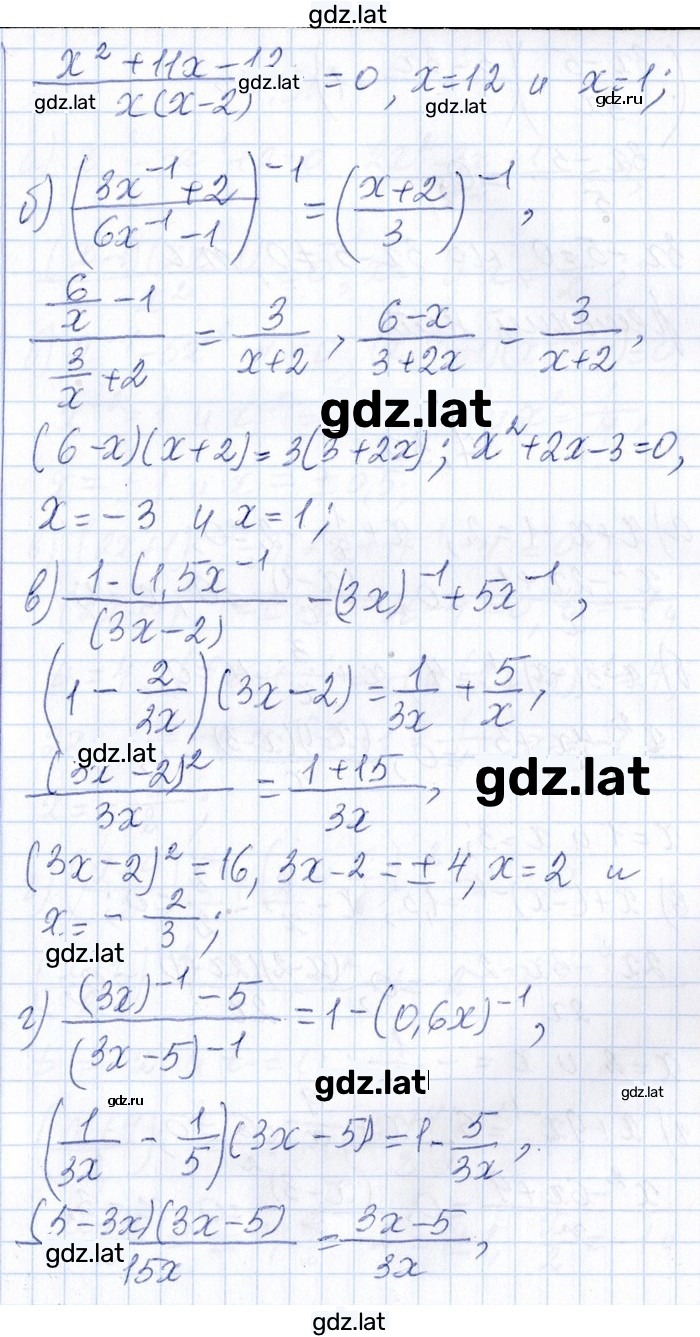 gdz.lat
(x² + 11x - 12) / (x(x-2)) = 0, x=12 и x=1;
gdz.lat gdz.lat gdz.lat gdz.ru
б) ((3x⁻¹+2) / (6x⁻¹-1))⁻¹ = ((x+2) / 3)⁻¹,
(6/x - 1) / (3/x + 2) = 3 / (x+2), (6-x) / (3+2x) = 3 / (x+2),
gdz.lat
(6-x)(x+2) = 3(3+2x); x²+2x-3=0,
x = -3 и x=1;
в) (1-(1,5x⁻¹) / (3x-2) - (3x)⁻¹ + 5x⁻¹,
(1 - 2/3x)(3x-2) = 1/3x + 5/x,
gdz.lat
(3x-2)² / 3x = (1+15) / 3x,
gdz.lat
(3x-2)² = 16, 3x-2 = ±4, x=2 и
x = - 2/3;
gdz.lat
г) ((3x)⁻¹ - 5) / (3x-5)⁻¹ = 1-(0,6x)⁻¹,
gdz.ru gdz.lat gdz.lat
(1/3x - 1/5)(3x-5) = 1 - 5/3x,
(5-3x)(3x-5) / 15x = (3x-5) / 3x,
gdz.lat
gdz.lat